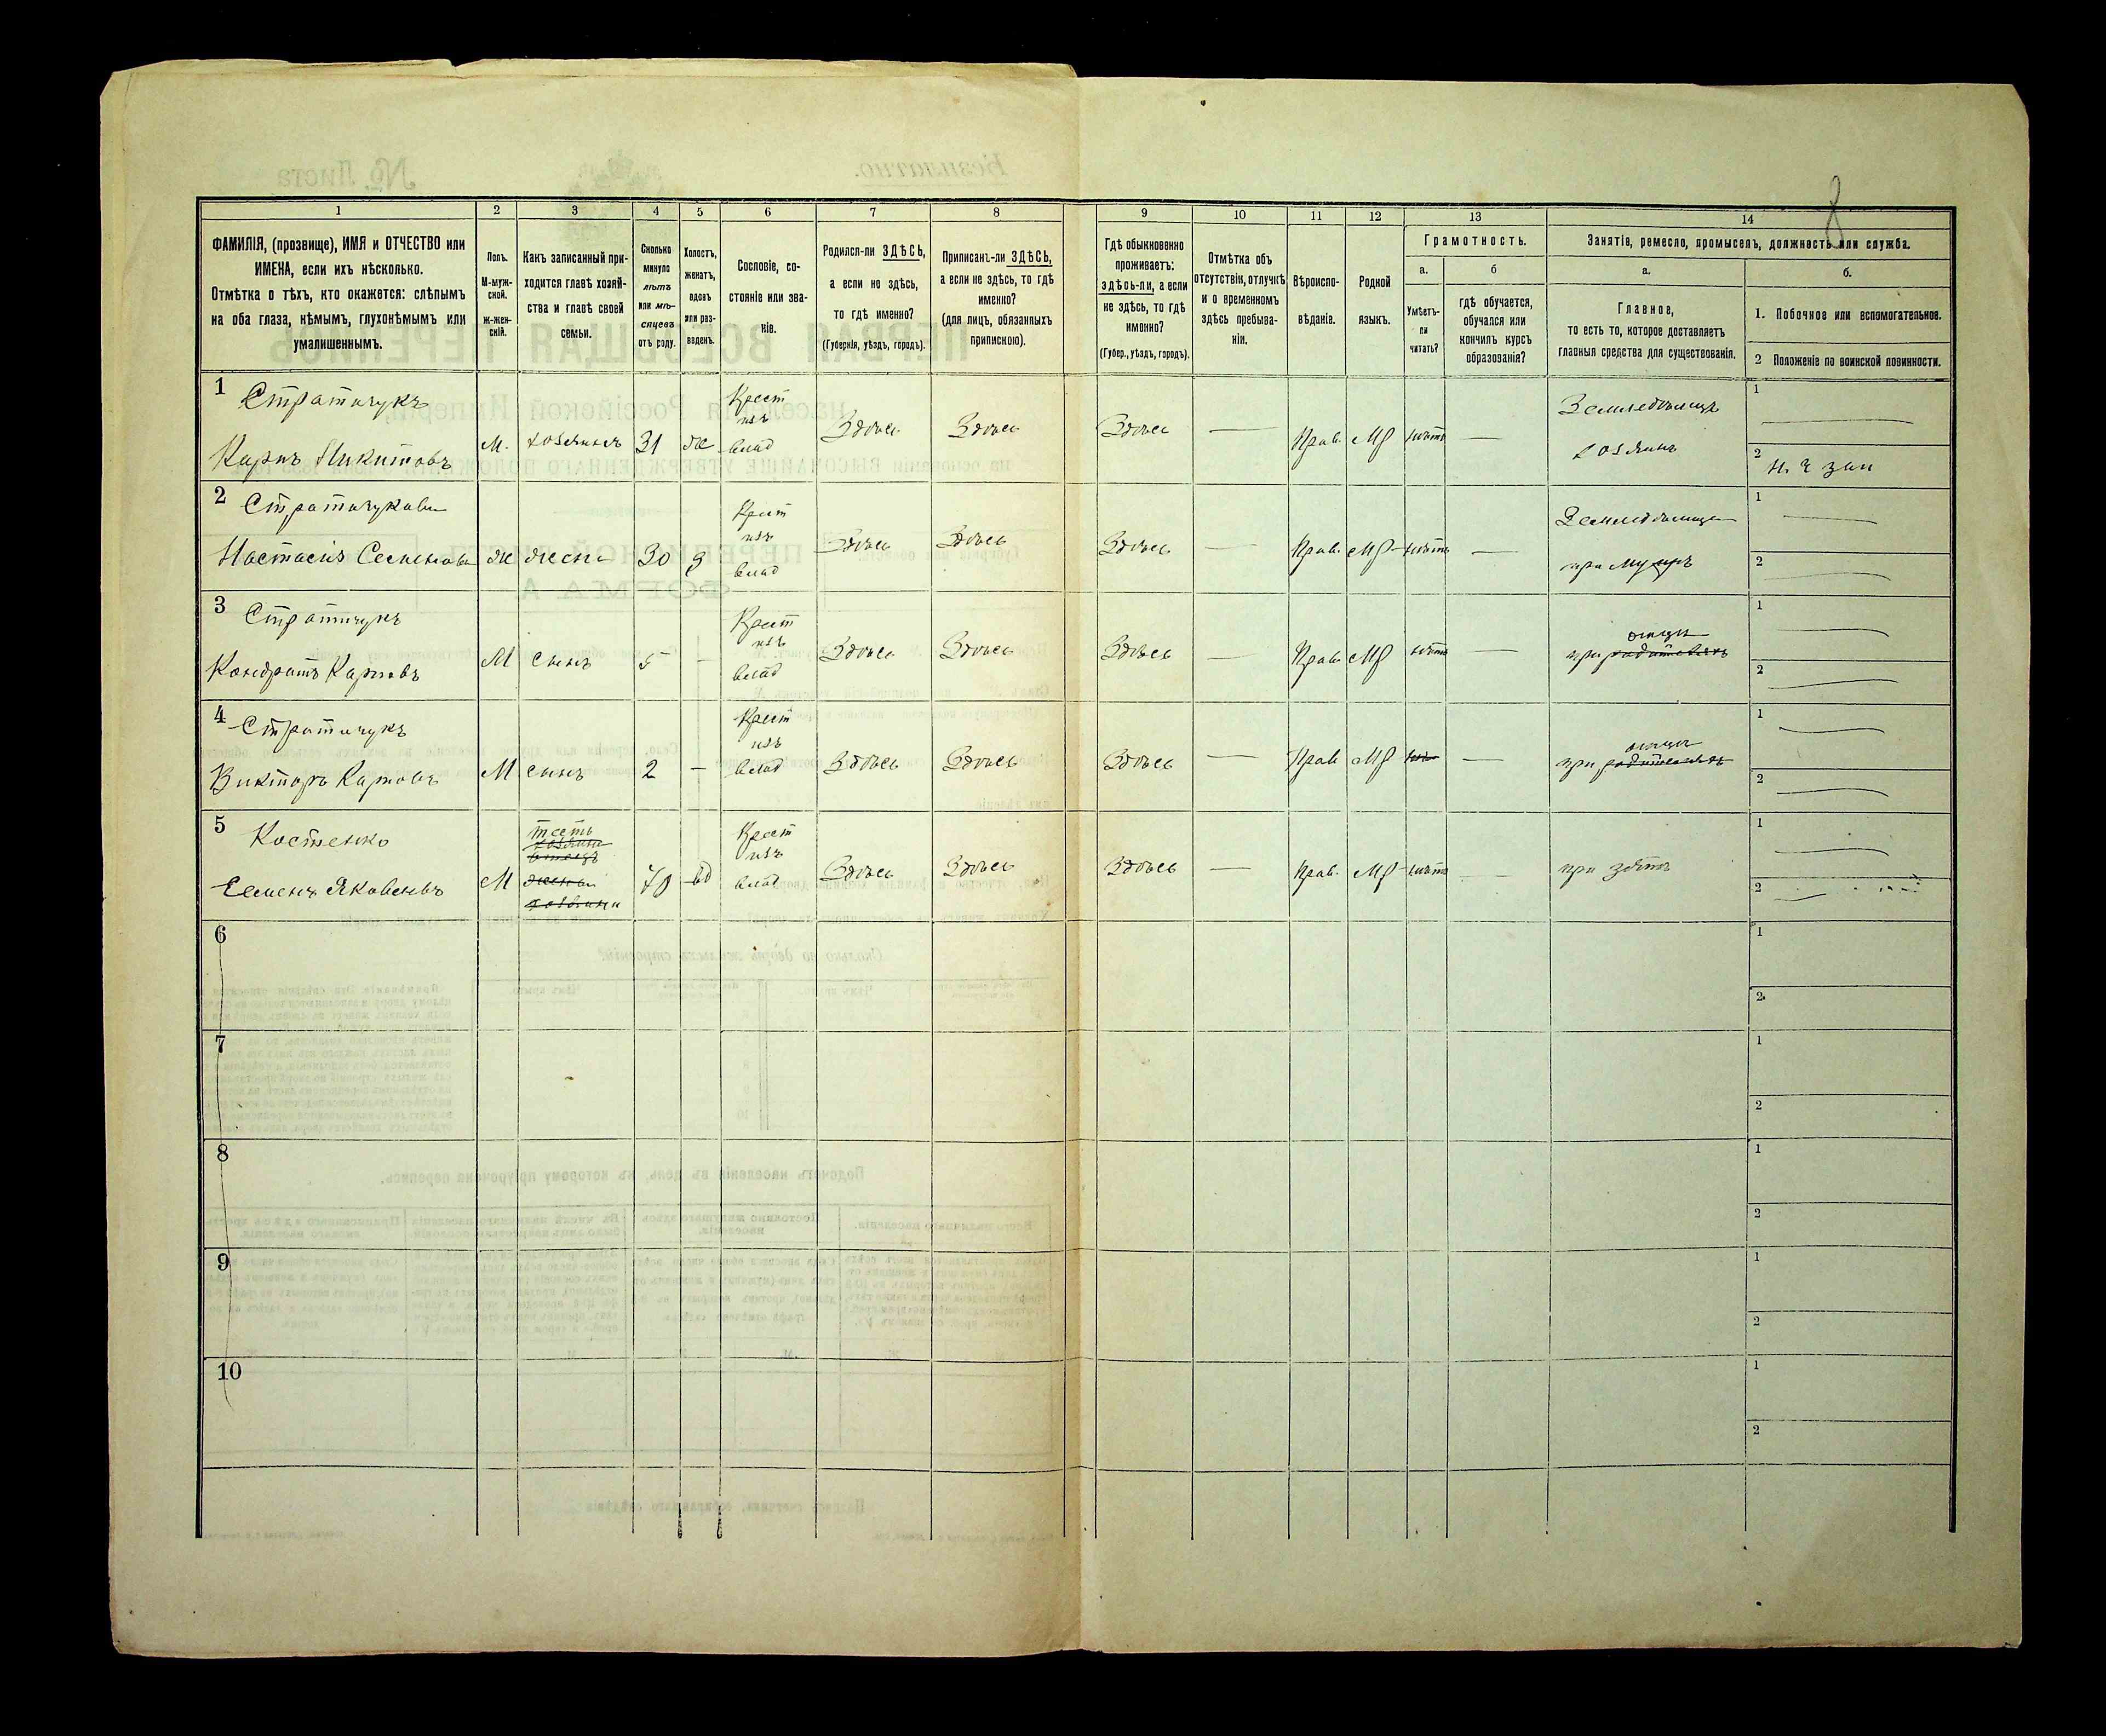 8
1 2 3 4 5 6 7 8 9 10 11 12 13 14
ФАМИЛІЯ, (прозвище), ИМЯ и ОТЧЕСТВО или
ИМЕНА, если ихъ нѣсколько.
Отмѣтка о тѣхъ, кто окажется: слѣпымъ
на оба глаза, нѣмымъ, глухонѣмымъ или
умалишеннымъ.
Полъ.
М-муж-
ской.
ж-жен-
скій.
Какъ записанный при-
ходится главѣ хозяй-
ства и главѣ своей
семьи.
Сколько
минуло
лѣтъ
или мѣ-
сяцевъ
отъ роду.
Холостъ,
женатъ,
вдовъ
или раз-
веденъ.
Сословіе, со-
стояніе или зва-
ніе.
Родился-ли ЗДѢСЬ,
а если не здѣсь,
то гдѣ именно?
(Губернія, уѣздъ, городъ).
Приписанъ-ли ЗДѢСЬ,
а если не здѣсь, то гдѣ
именно?
(для лицъ, обязанныхъ
припискою).
Гдѣ обыкновенно
проживаетъ:
здѣсь-ли, а если
не здѣсь, то гдѣ
именно?
(Губер., уѣздъ, городъ).
Отмѣтка объ
отсутствіи, отлучкѣ
и о временномъ
здѣсь пребыва-
ніи.
Вѣроиспо-
вѣданіе.
Родной
языкъ.
Грамотность.
а.
Умѣетъ-
ли
читать?
б
гдѣ обучается,
обучался или
кончилъ курсъ
образованія?
Занятіе, ремесло, промыселъ, должность или служба.
а.
Главное,
то есть то, которое доставляетъ
главныя средства для существованія.
б.
1. Побочное или вспомогательное.
2 Положеніе по воинской повинности.
1 Стратичукъ
Карпъ Никитовъ
М. хозяинъ 31 ж
Крест
изъ
влад
Здѣсь Здѣсь Здѣсь — Прав. МР нѣтъ —
Земледѣлецъ
хозяинъ
1 —
2
2 Стратичукова
Настасія Семенова
ж жена 30 з
Крест
изъ
влад
Здѣсь Здѣсь Здѣсь — Прав. МР нѣтъ —
при мужѣ
1 —
2 —
3 Стратичукъ
Кондратъ Карповъ
М сынъ 5 —
Крест
изъ
влад
Здѣсь Здѣсь Здѣсь — Прав. МР нѣтъ —
отцѣ
при родителяхъ
1 —
2 —
4 Стратичукъ
Викторъ Карповъ
М сынъ 2 —
Крест
изъ
влад
Здѣсь Здѣсь Здѣсь — Прав МР нѣтъ —
отцѣ
при родителяхъ
1 —
2 —
5 Костенко
Семенъ Яковлевъ
М
тесть
хозяина
отецъ
жены
хозяина
70 вд
Крест
изъ
влад
Здѣсь Здѣсь Здѣсь — Прав. МР нѣтъ —
при зятѣ
1 —
2 —
6
1
2
7
1
2
8
1
2
9
1
2
10
1
2